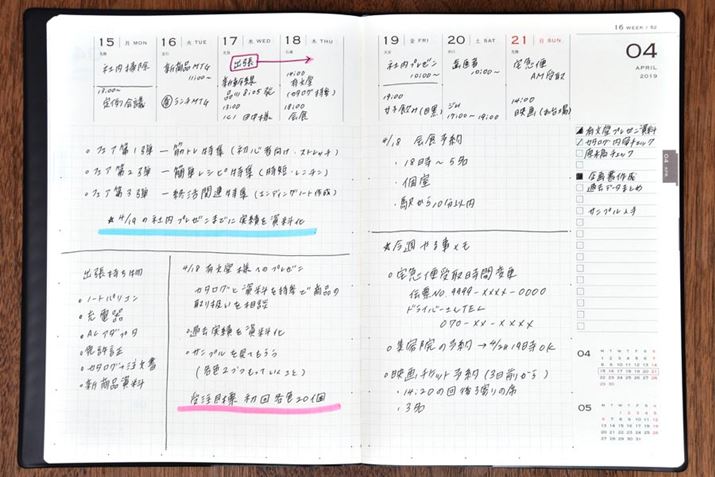 15 月 MON
社内掃除
13:00〜
定例会議
16 火 TUE
新商品MTG
11:00〜
ランチMTG
17 水 WED
出張
新幹線
品川 8:05 発
13:00
18 木 THU
14:00
有文堂
(カタログ持参)
18:00
会食
19 金 FRI
社内プレゼン
10:00〜
19:00
女子飲み(目黒)
20 土 SAT
歯医者
10:00〜
ジム
17:00〜19:00
21 日 SUN
宅急便
AM受取
14:00
映画(お台場)
16 WEEK / 52
04
APRIL
2019
有文堂プレゼン資料
カタログ内容チェック
居木店チェック
企画書作成
過去データまとめ
サンプル入手
04 APR
○フェア第1弾 ― 筋トレ特集(初心者向け・ストレッチ)
○フェア第2弾 ― 簡単レシピ特集(時短・レンチン)
○フェア第3弾 ― 終活関連特集(エンディングノート作成)
★4/19の社内プレゼンまでに実績を資料化
出張持ち物
○ノートパソコン
○充電器
○ACアダプタ
○免許証
○カタログ+注文書
○新商品資料
4/18 有文堂様へのプレゼン
カタログと資料を持参で商品の
取り扱いを相談
○過去実績を資料化
○サンプルを見てもらう
(各色2つもっていくこと)
発注目標 初回各色20個
4/18 会食予約
・18時〜5名
・個室
・駅から10分以内
★今週やる事メモ
○宅急便受取時間変更
伝票No. 9999-xxxx-0000
ドライバーさんTEL
070-xx-xxxx
○美容院の予約→4/22 19時OK
○映画チケット予約(3日前から)
・14:20の回 後ろ寄りの席
・3名
04
M T W T F S S
1 2 3 4 5 6 7
8 9 10 11 12 13 14
15 16 17 18 19 20 21
22 23 24 25 26 27 28
29 30
05
M T W T F S S
1 2 3 4 5
6 7 8 9 10 11 12
13 14 15 16 17 18 19
20 21 22 23 24 25 26
27 28 29 30 31